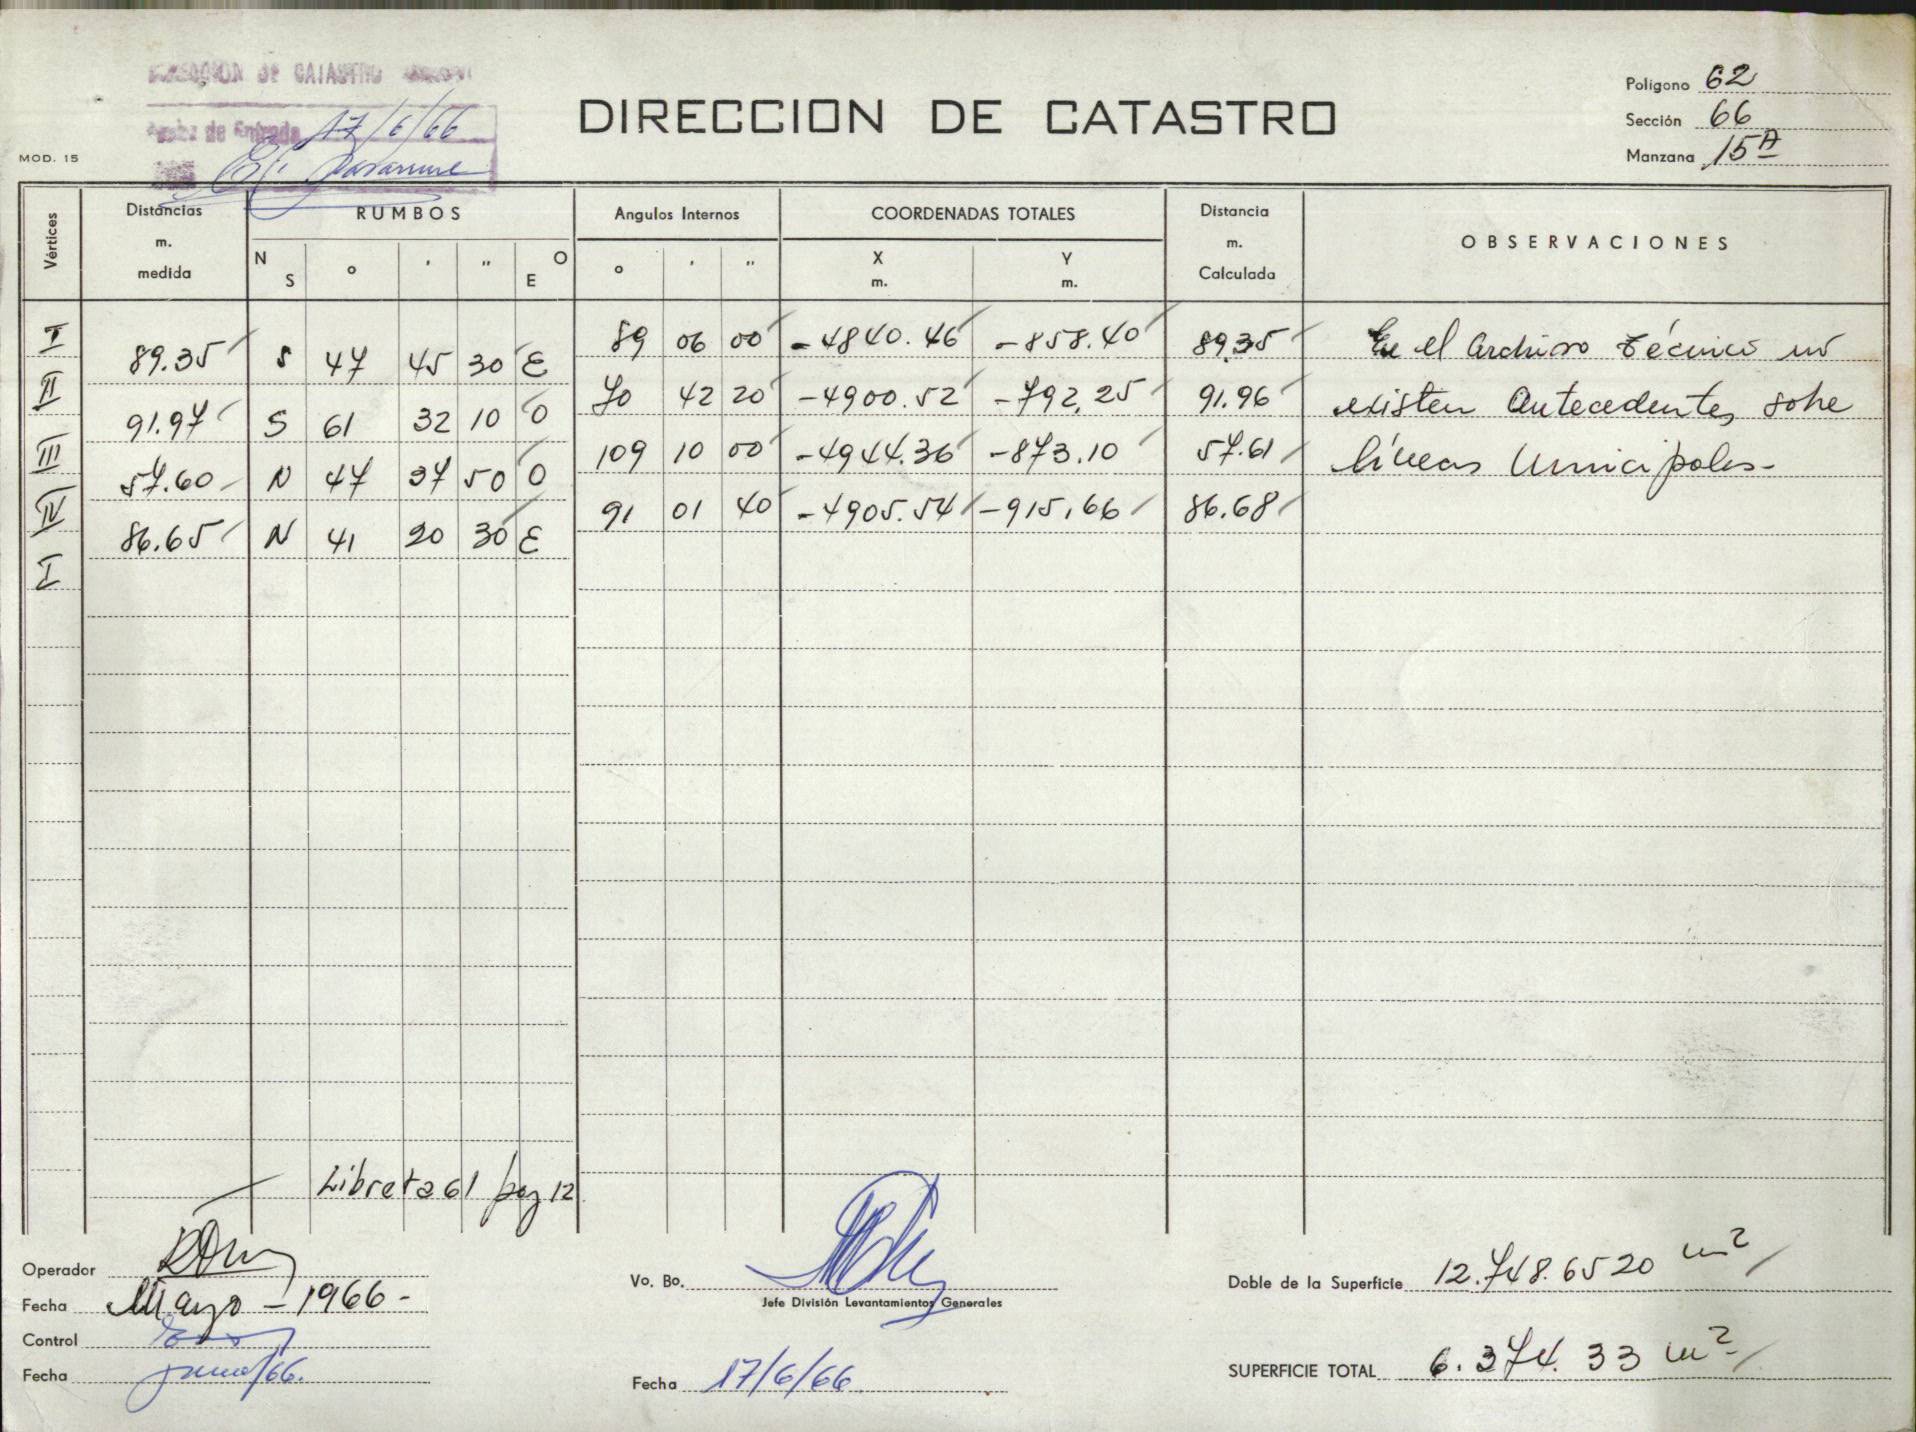 DIRECCION DE CATASTRO
17/6/66
DIRECCION DE CATASTRO
Polígono 62
Sección 66
Manzana 15A
MOD. 15
Vértices Distancias m. medida RUMBOS Angulos Internos COORDENADAS TOTALES Distancia m. Calculada OBSERVACIONES
N S ° ' " O E ° ' " X m. Y m.
I 89 06 00 -4840.46 -858.40 89.35 En el Archivo técnico no
89.35 S 47 45 30 E
II 70 42 20 -4900.52 -792.25 91.96 existen Antecedentes sobre
91.97 S 61 32 10 O
III 109 10 00 -4944.36 -873.10 57.61 líneas Municipales-
57.60 N 47 37 50 O
IV 91 01 40 -4905.54 -915.66 86.68
86.65 N 41 20 30 E
I
Libreta 61 pag 12
Operador
Fecha Mayo - 1966 -
Control
Fecha junio/66.
Vo. Bo.
Jefe División Levantamientos Generales
Fecha 17/6/66
Doble de la Superficie 12.748.6520 m2
SUPERFICIE TOTAL 6.374.33 m2